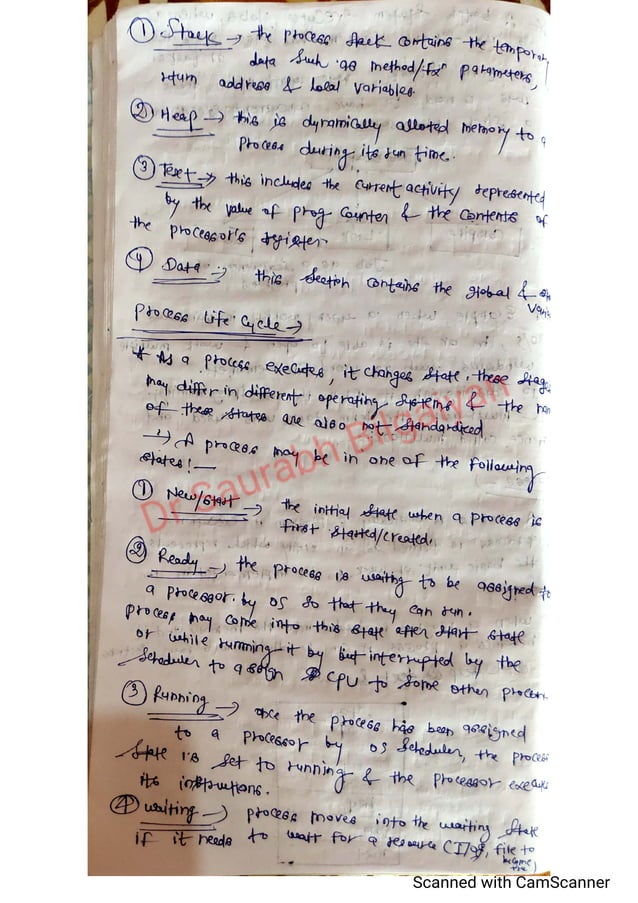 ① Stack → the process stack contains the temporary
data such as method/fxn parameters,
return address & local variables.
② Heap → this is dynamically alloted memory to a
process during its run time.
③ Text → this includes the current activity represented
by the value of prog counter & the contents of
the processor's register
④ Data → this section contains the global &
Process Life Cycle →
* As a process executes, it changes state. these stag
may differ in different operating systems & the
of these states are also not standardized
→ A process may be in one of the following
states! —
① New/start → the initial state when a process is
first started/created.
② Ready → the process is waiting to be assigned to
a processor by OS so that they can run.
process may come into this state after start state
or while running it by but interrupted by the
scheduler to assign CPU to some other process.
③ Running → once the process has been assigned
to a processor by OS scheduler, the process
state is set to running & the processor executes
its instructions.
④ waiting → process moves into the waiting state
if it needs to wait for a resource (I/O, file to
become
Dr Saurabh Bilgaiyan
Scanned with CamScanner